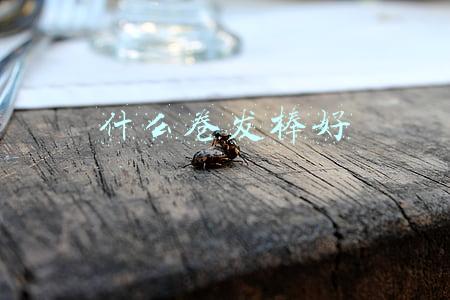 什么卷发棒好